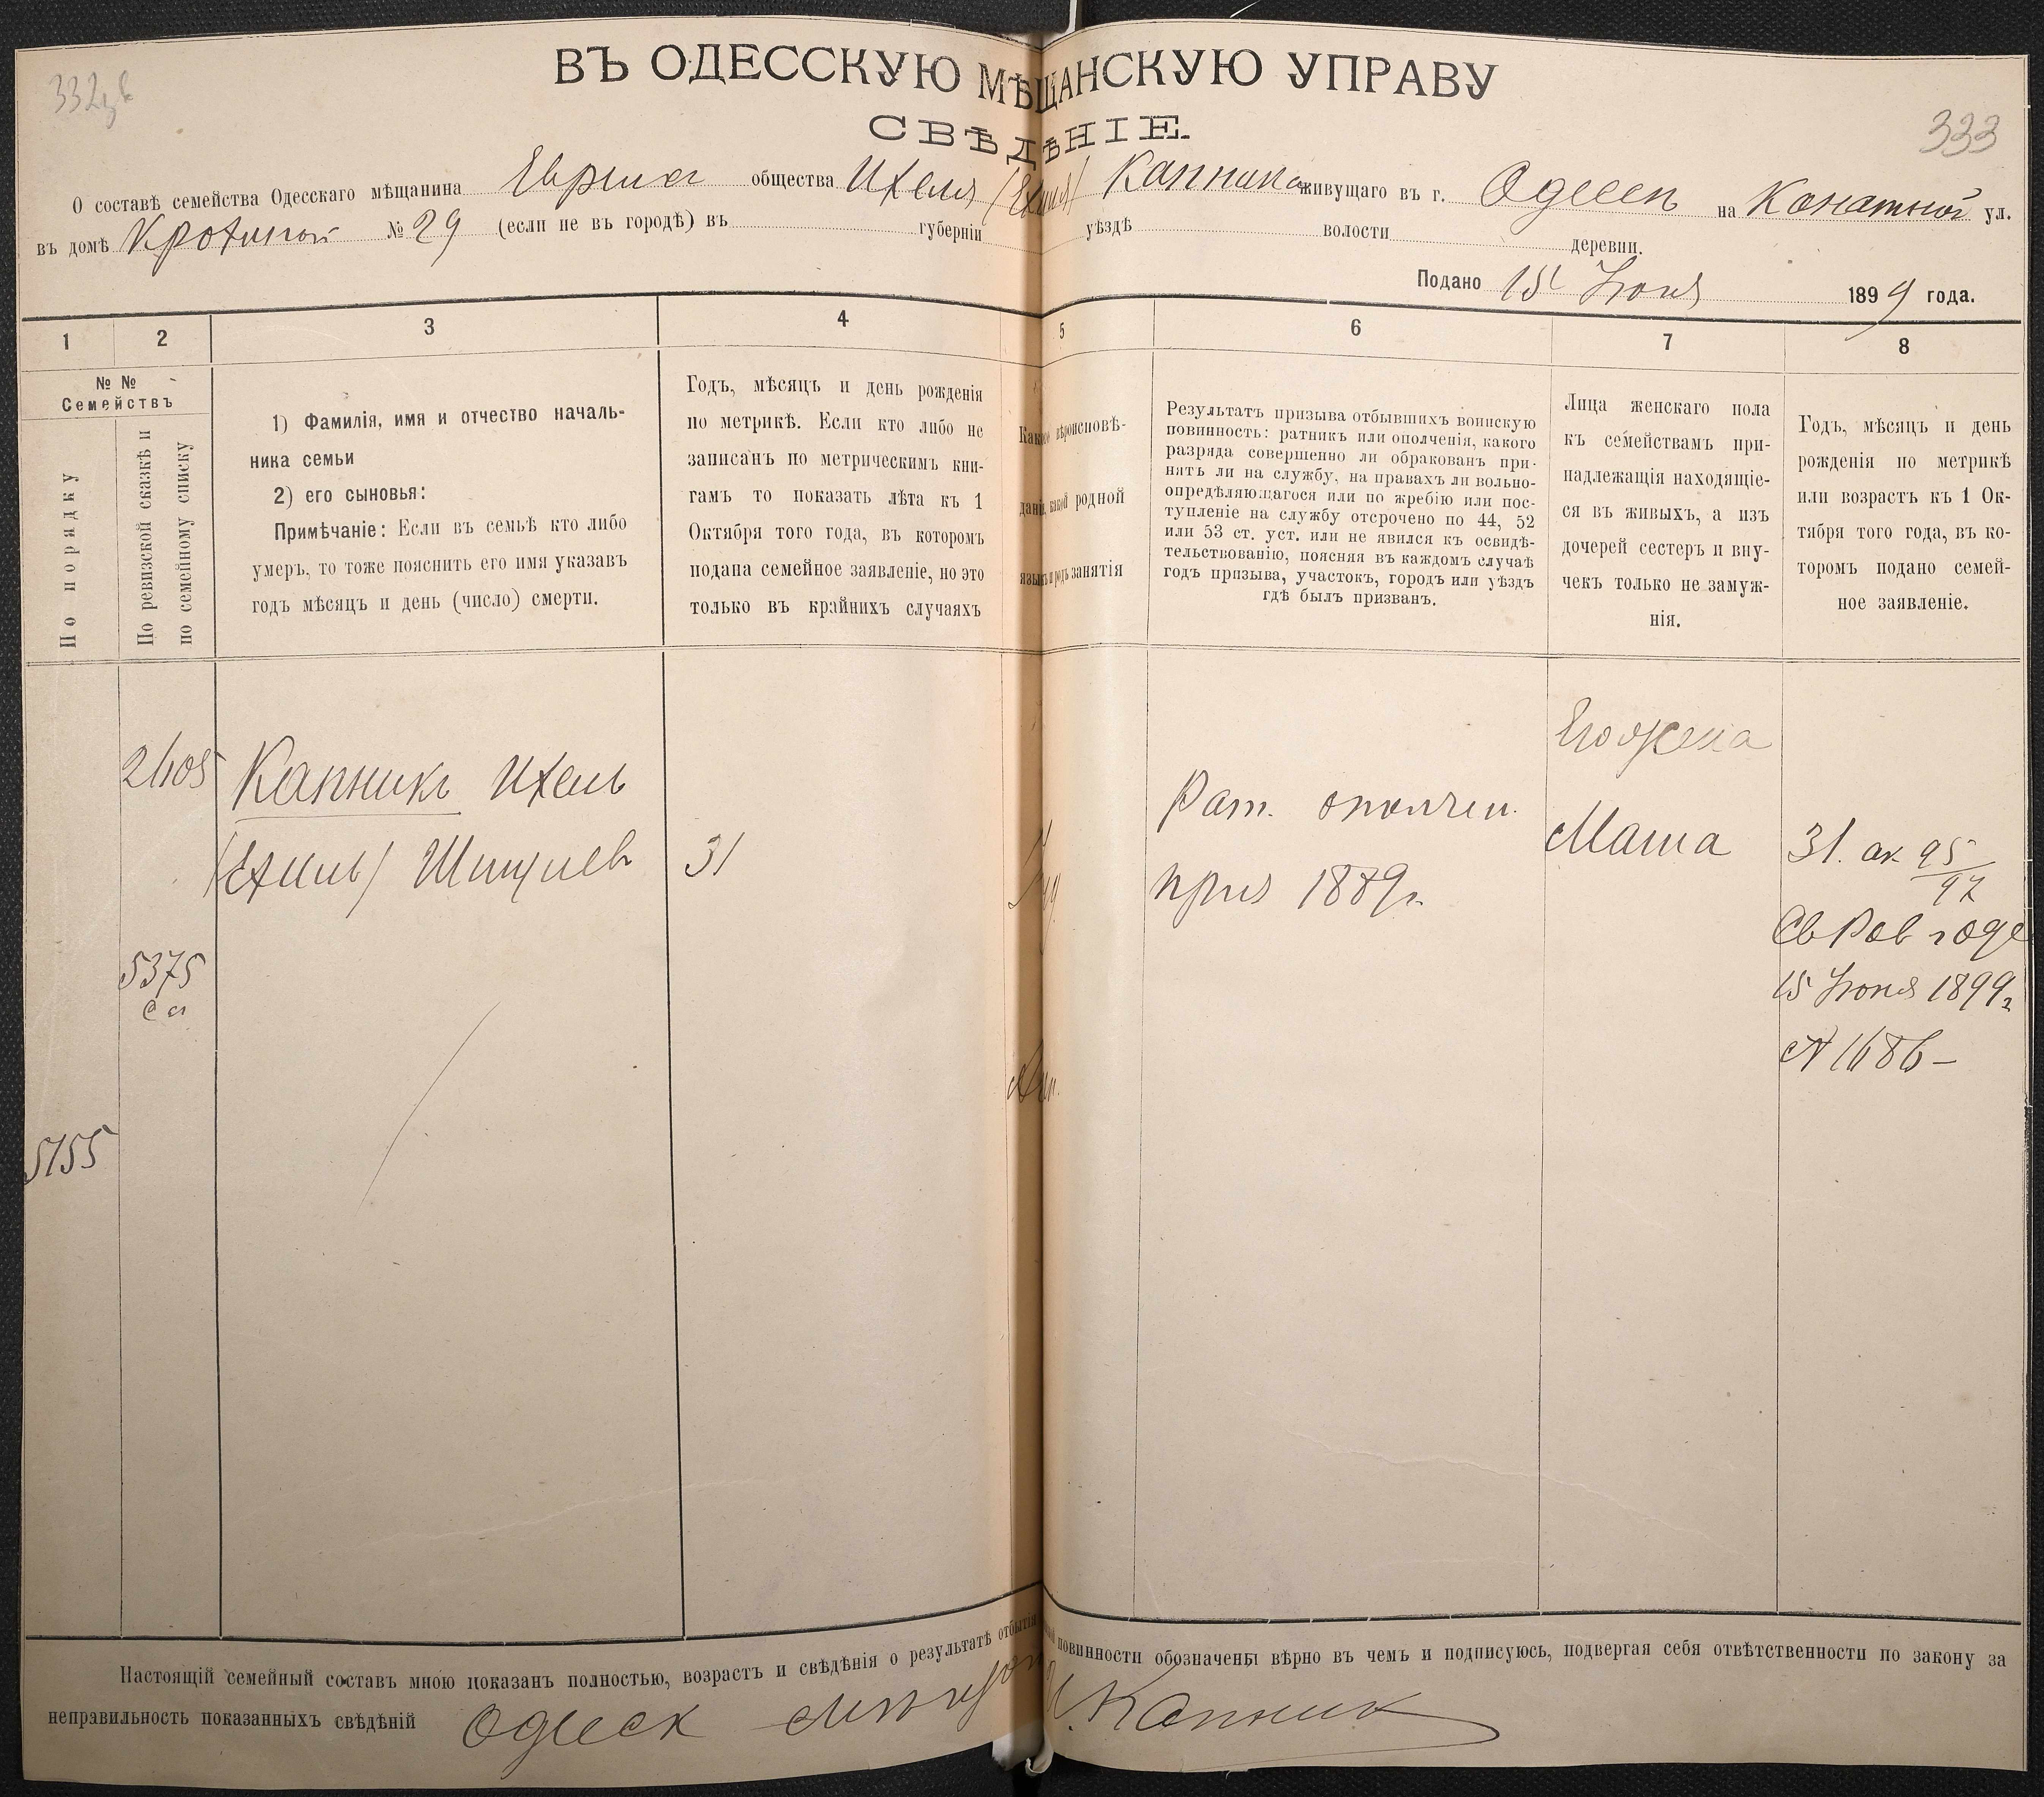 332
333
ВЪ ОДЕССКУЮ МѢЩАНСКУЮ УПРАВУ
СВѢДѢНІЕ.
О составѣ семейства Одесскаго мѣщанина общества Ихеля (Ехиля) Капника живущаго въ г. Одессѣ на Канатной ул.
въ домѣ № 29 (если не въ городѣ) въ губерніи уѣздѣ волости деревни.
Подано 15 Іюня 1899 года.
1 2 3 4 5 6 7 8
№ №
Семействъ
По порядку
По ревизской сказкѣ и
по семейному списку
1) Фамилія, имя и отчество началь-
ника семьи
2) его сыновья:
Примѣчаніе: Если въ семьѣ кто либо
умеръ, то тоже пояснить его имя указавъ
годъ мѣсяцъ и день (число) смерти.
Годъ, мѣсяцъ и день рожденія
по метрикѣ. Если кто либо не
записанъ по метрическимъ кни-
гамъ то показать лѣта къ 1
Октября того года, въ которомъ
подана семейное заявленіе, но это
только въ крайнихъ случаяхъ
Какое вѣроисповѣ-
данія, какой родной
языкъ и родъ занятія
Результатъ призыва отбывшихъ воинскую
повинность: ратникъ или ополченія, какого
разряда совершенно ли обракованъ при-
нятъ ли на службу, на правахъ ли вольно-
опредѣляющагося или по жребію или пос-
тупленіе на службу отсрочено по 44, 52
или 53 ст. уст. или не явился къ освидѣ-
тельствованію, поясняя въ каждомъ случаѣ
годъ призыва, участокъ, городъ или уѣздъ
гдѣ былъ призванъ.
Лица женскаго пола
къ семействамъ при-
надлежащія находящіе-
ся въ живыхъ, а изъ
дочерей сестеръ и вну-
чекъ только не замуж-
нія.
Годъ, мѣсяцъ и день
рожденія по метрикѣ
или возрастъ къ 1 Ок-
тября того года, въ ко-
торомъ подано семей-
ное заявленіе.
2405 Капникъ Ихель
(Ехиль) 31
Рат. ополчен.
приз 1889 г.
Его жена
Маша
31. ак 95/97
Св Рав
15 Іюня 1899 г
№ 1686 -
5375
5155
Настоящій семейный составъ мною показанъ полностью, возрастъ и свѣдѣнія о результатѣ отбытія повинности обозначены вѣрно въ чемъ и подписуюсь, подвергая себя отвѣтственности по закону за
неправильность показанныхъ свѣдѣній Одесск И. Капник